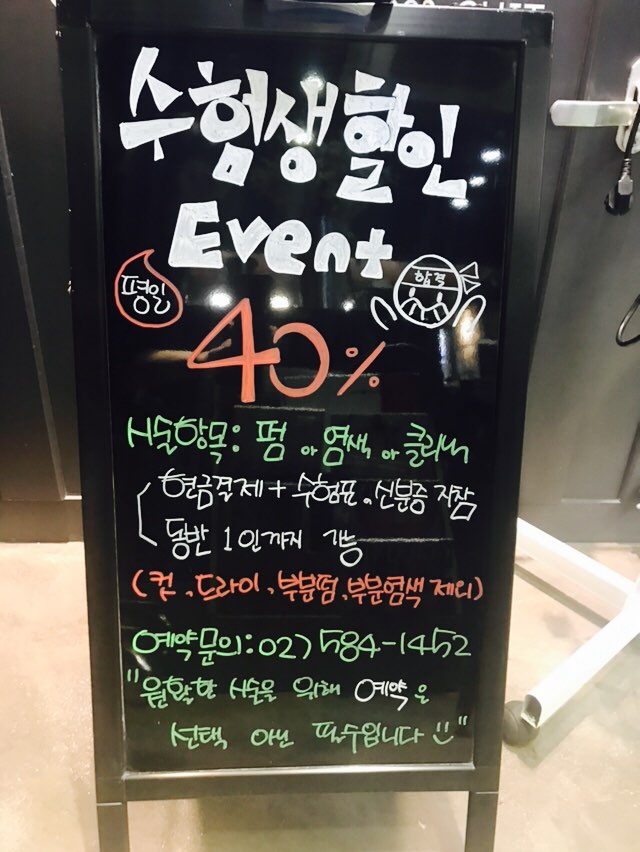 수험생할인
Event
평일
합격
40%
시술항목: 펌 or 염색 or 클리닉
현금결제 + 수험표, 신분증 지참
동반 1인까지 가능
(컷, 드라이, 부분펌, 부분염색 제외)
예약문의:02)584-1452
"원활한 시술을 위해 예약은
선택 아닌 필수입니다"